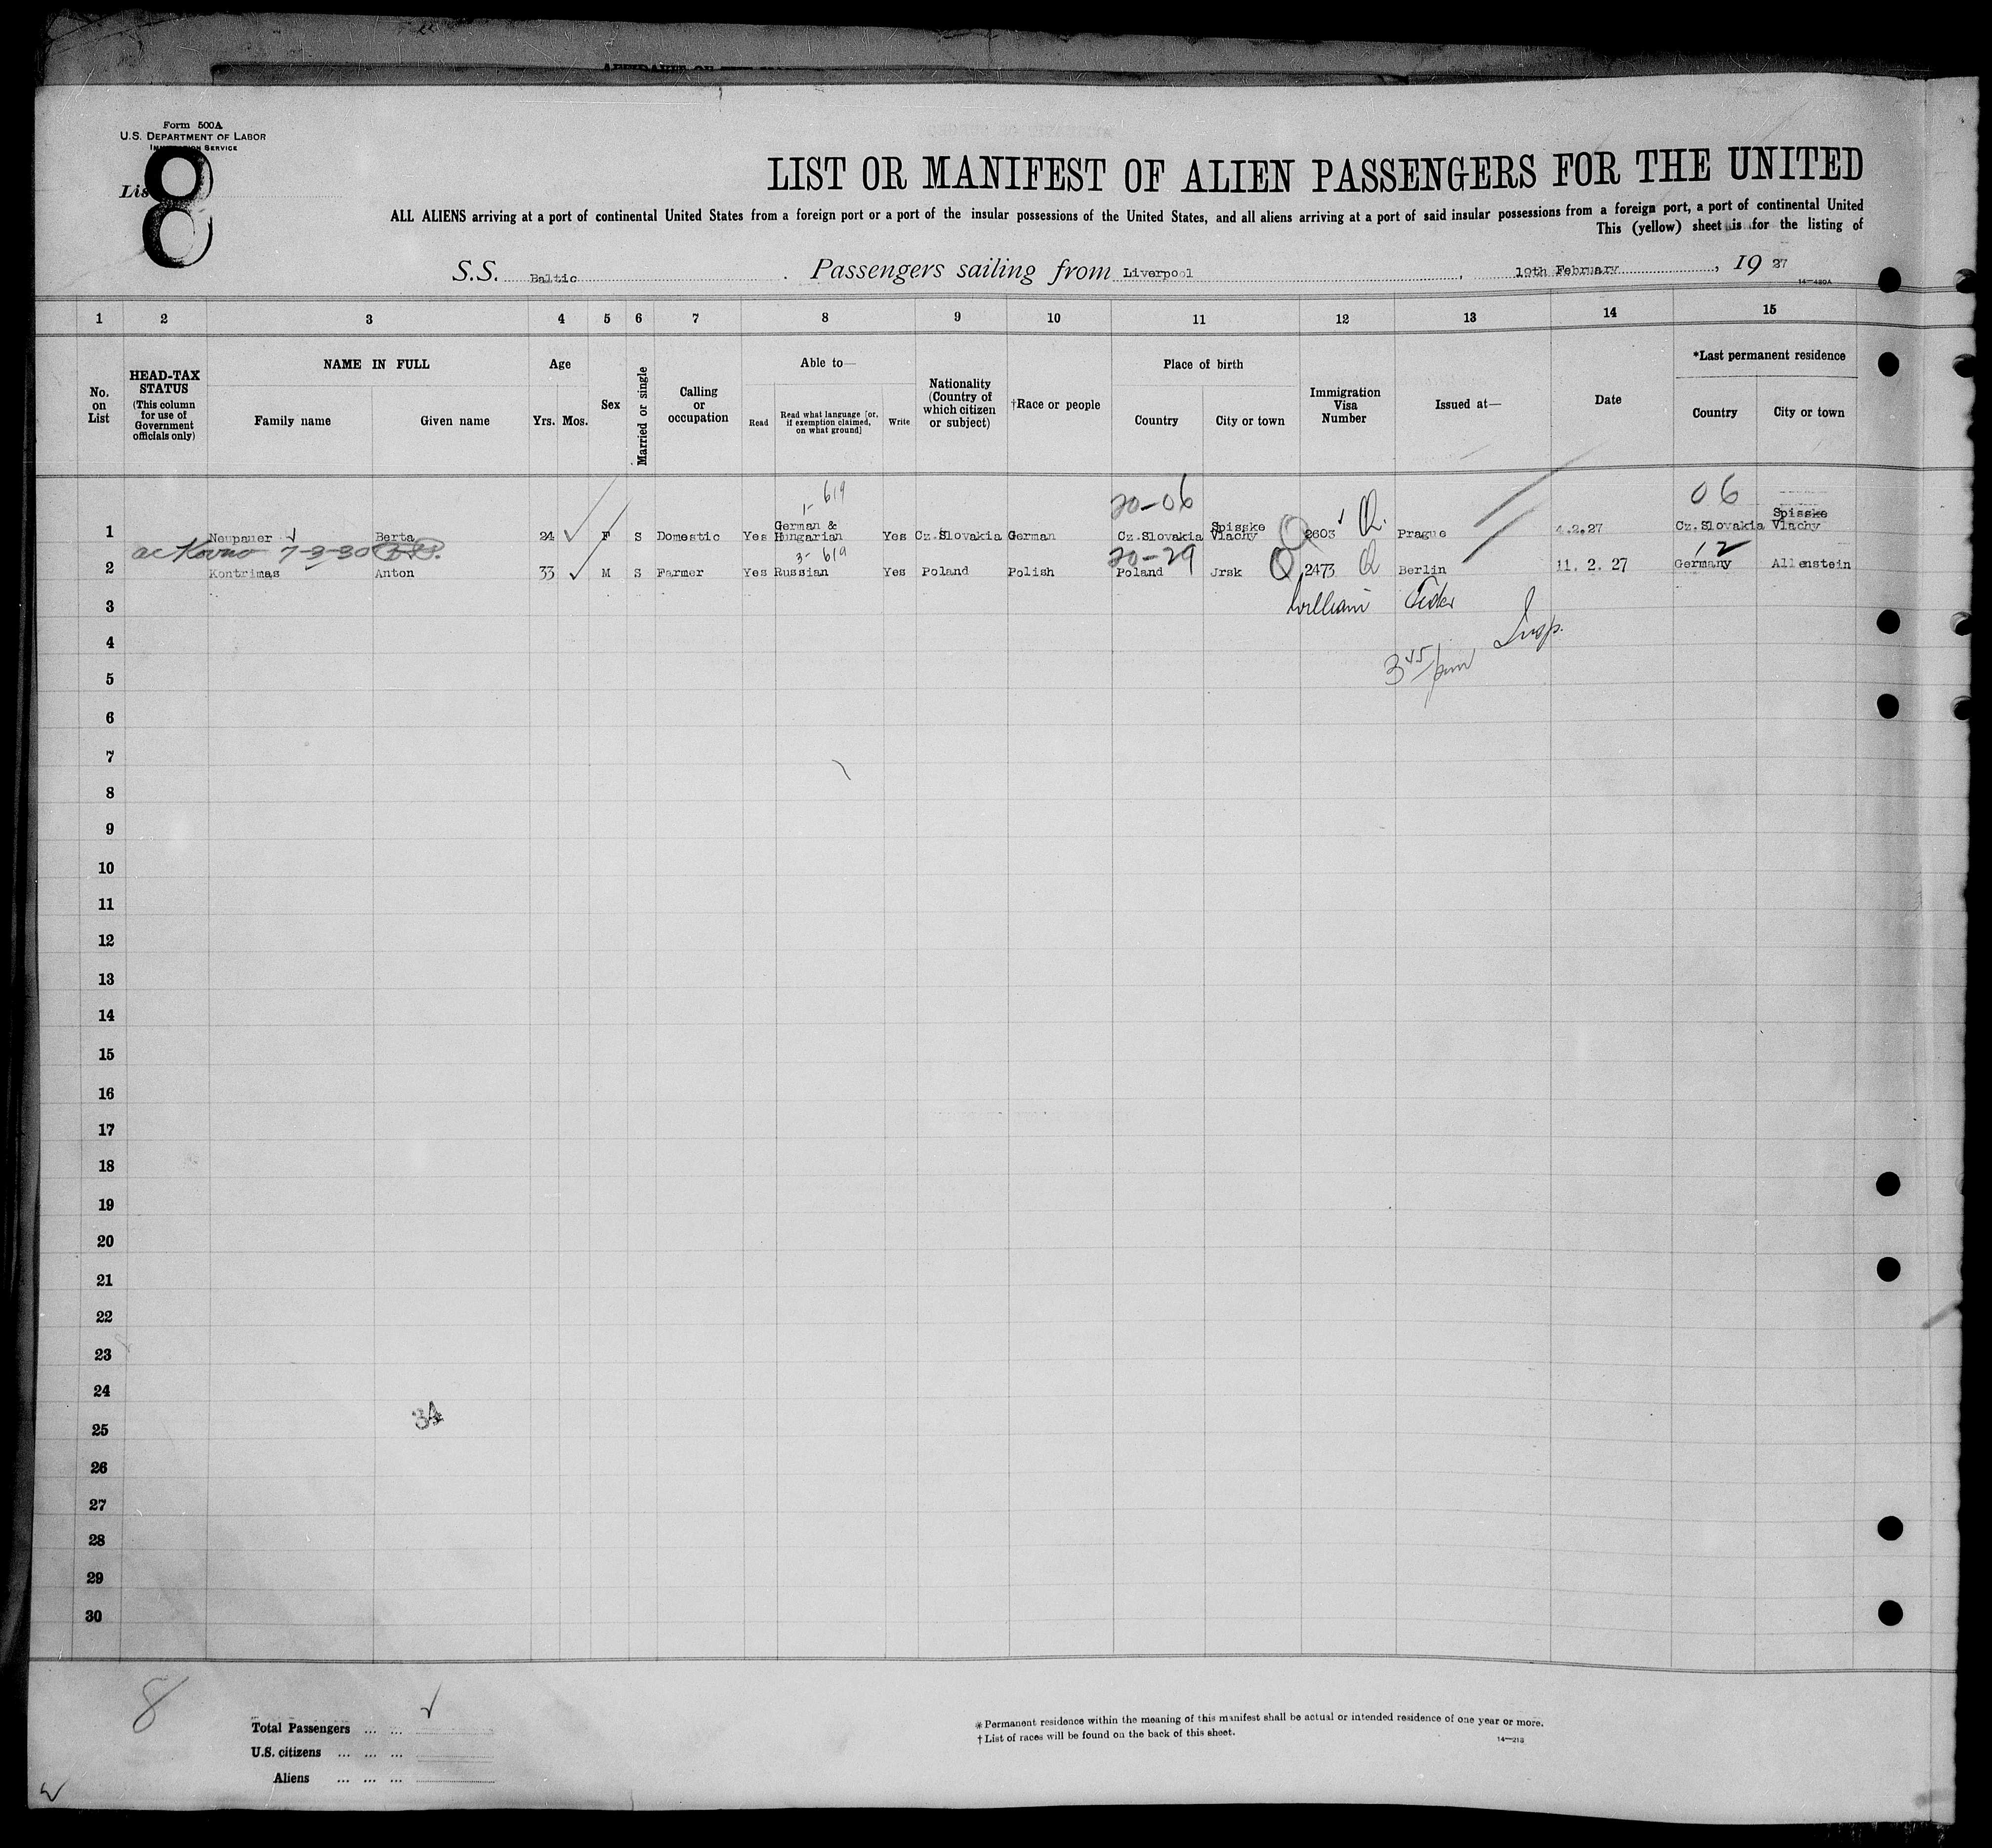 Form 500A
U.S. DEPARTMENT OF LABOR
IMMIGRATION SERVICE
8
LIST OR MANIFEST OF ALIEN PASSENGERS FOR THE UNITED
ALL ALIENS arriving at a port of continental United States from a foreign port or a port of the insular possessions of the United States, and all aliens arriving at a port of said insular possessions from a foreign port, a port of continental United
This (yellow) sheet is for the listing of
S.S. Baltic. Passengers sailing from Liverpool, 10th February, 19 27
14—430A
1 2 3 4 5 6 7 8 9 10 11 12 13 14 15
No. on List
HEAD-TAX STATUS (This column for use of Government officials only)
NAME IN FULL
Family name Given name
Age
Yrs. Mos.
Sex
Married or single
Calling or occupation
Able to—
Read
Read what language [or, if exemption claimed, on what ground]
Write
Nationality (Country of which citizen or subject)
†Race or people
Place of birth
Country City or town
Immigration Visa Number
Issued at—
Date
*Last permanent residence
Country City or town
1- 619 20-06 06
1 Neupauer Berta 24 F S Domestic Yes German & Hungarian Yes Cz.Slovakia German Cz.Slovakia Spisske Vlachy 2603 Prague 4.2.27 Cz.Slovakia Spisske Vlachy
Kovno 7-3-30
3- 619 20-29 12
2 Kontrimas Anton 33 M S Farmer Yes Russian Yes Poland Polish Poland Jrsk 2473 Berlin 11. 2. 27 Germany Allenstein
3 William
Insp.
4
3 45/pm
5
6
7
8
9
10
11
12
13
14
15
16
17
18
19
20
21
22
23
24
34
25
26
27
28
29
30
8
Total Passengers ... ...
U.S. citizens ... ... ...
Aliens ... ... ...
* Permanent residence within the meaning of this manifest shall be actual or intended residence of one year or more.
† List of races will be found on the back of this sheet.
14—213